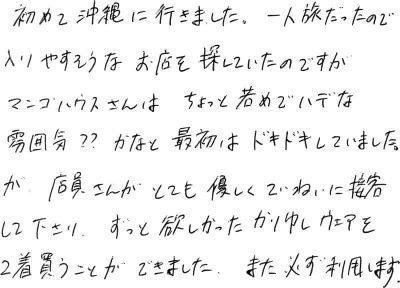 初めて沖縄に行きました。一人旅だったので
入りやすそうなお店を探していたのですが
マンゴハウスさんは ちょっと若めでハデな
雰囲気?? かなと最初はドキドキしていました。
が、店員さんがとても優しくていねいに接客
して下さり、ずっと欲しかったかりゆしウェアを
2着買うことができました。また必ず利用します。